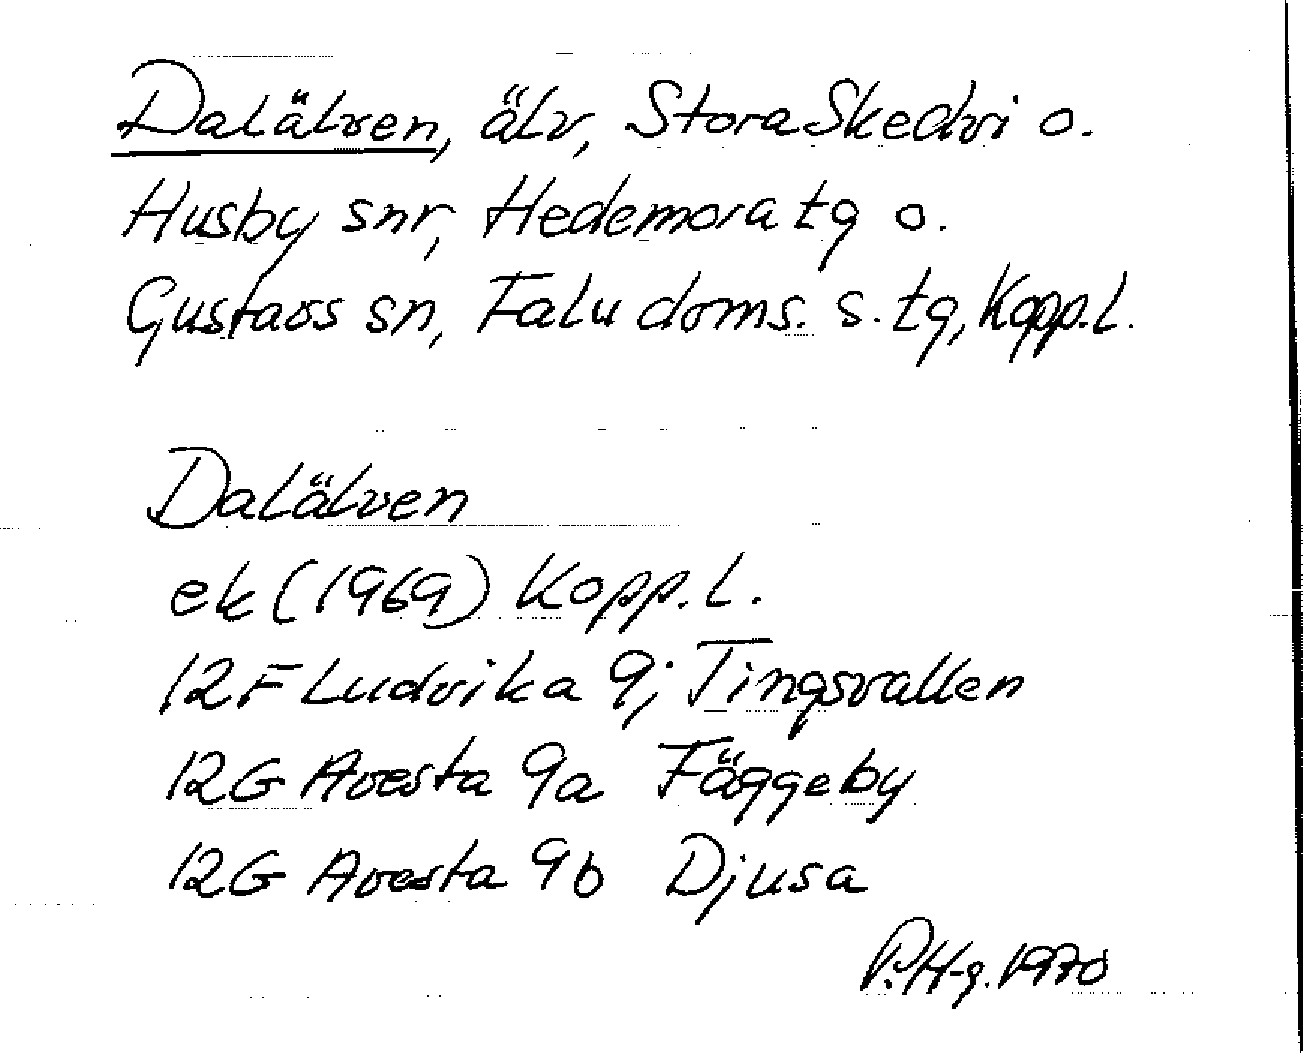 Dalälven, älv, Stora Skedvi o.
Husby snr, Hedemora tg o.
Gustavs sn, Falu doms. s. tg, Kopp.l.
Dalälven
ek (1969) Kopp.l.
12F Ludvika 9j Tingsvallen
12G Avesta 9a Fäggeby
12G Avesta 9b Djusa
P.H-g. 1970